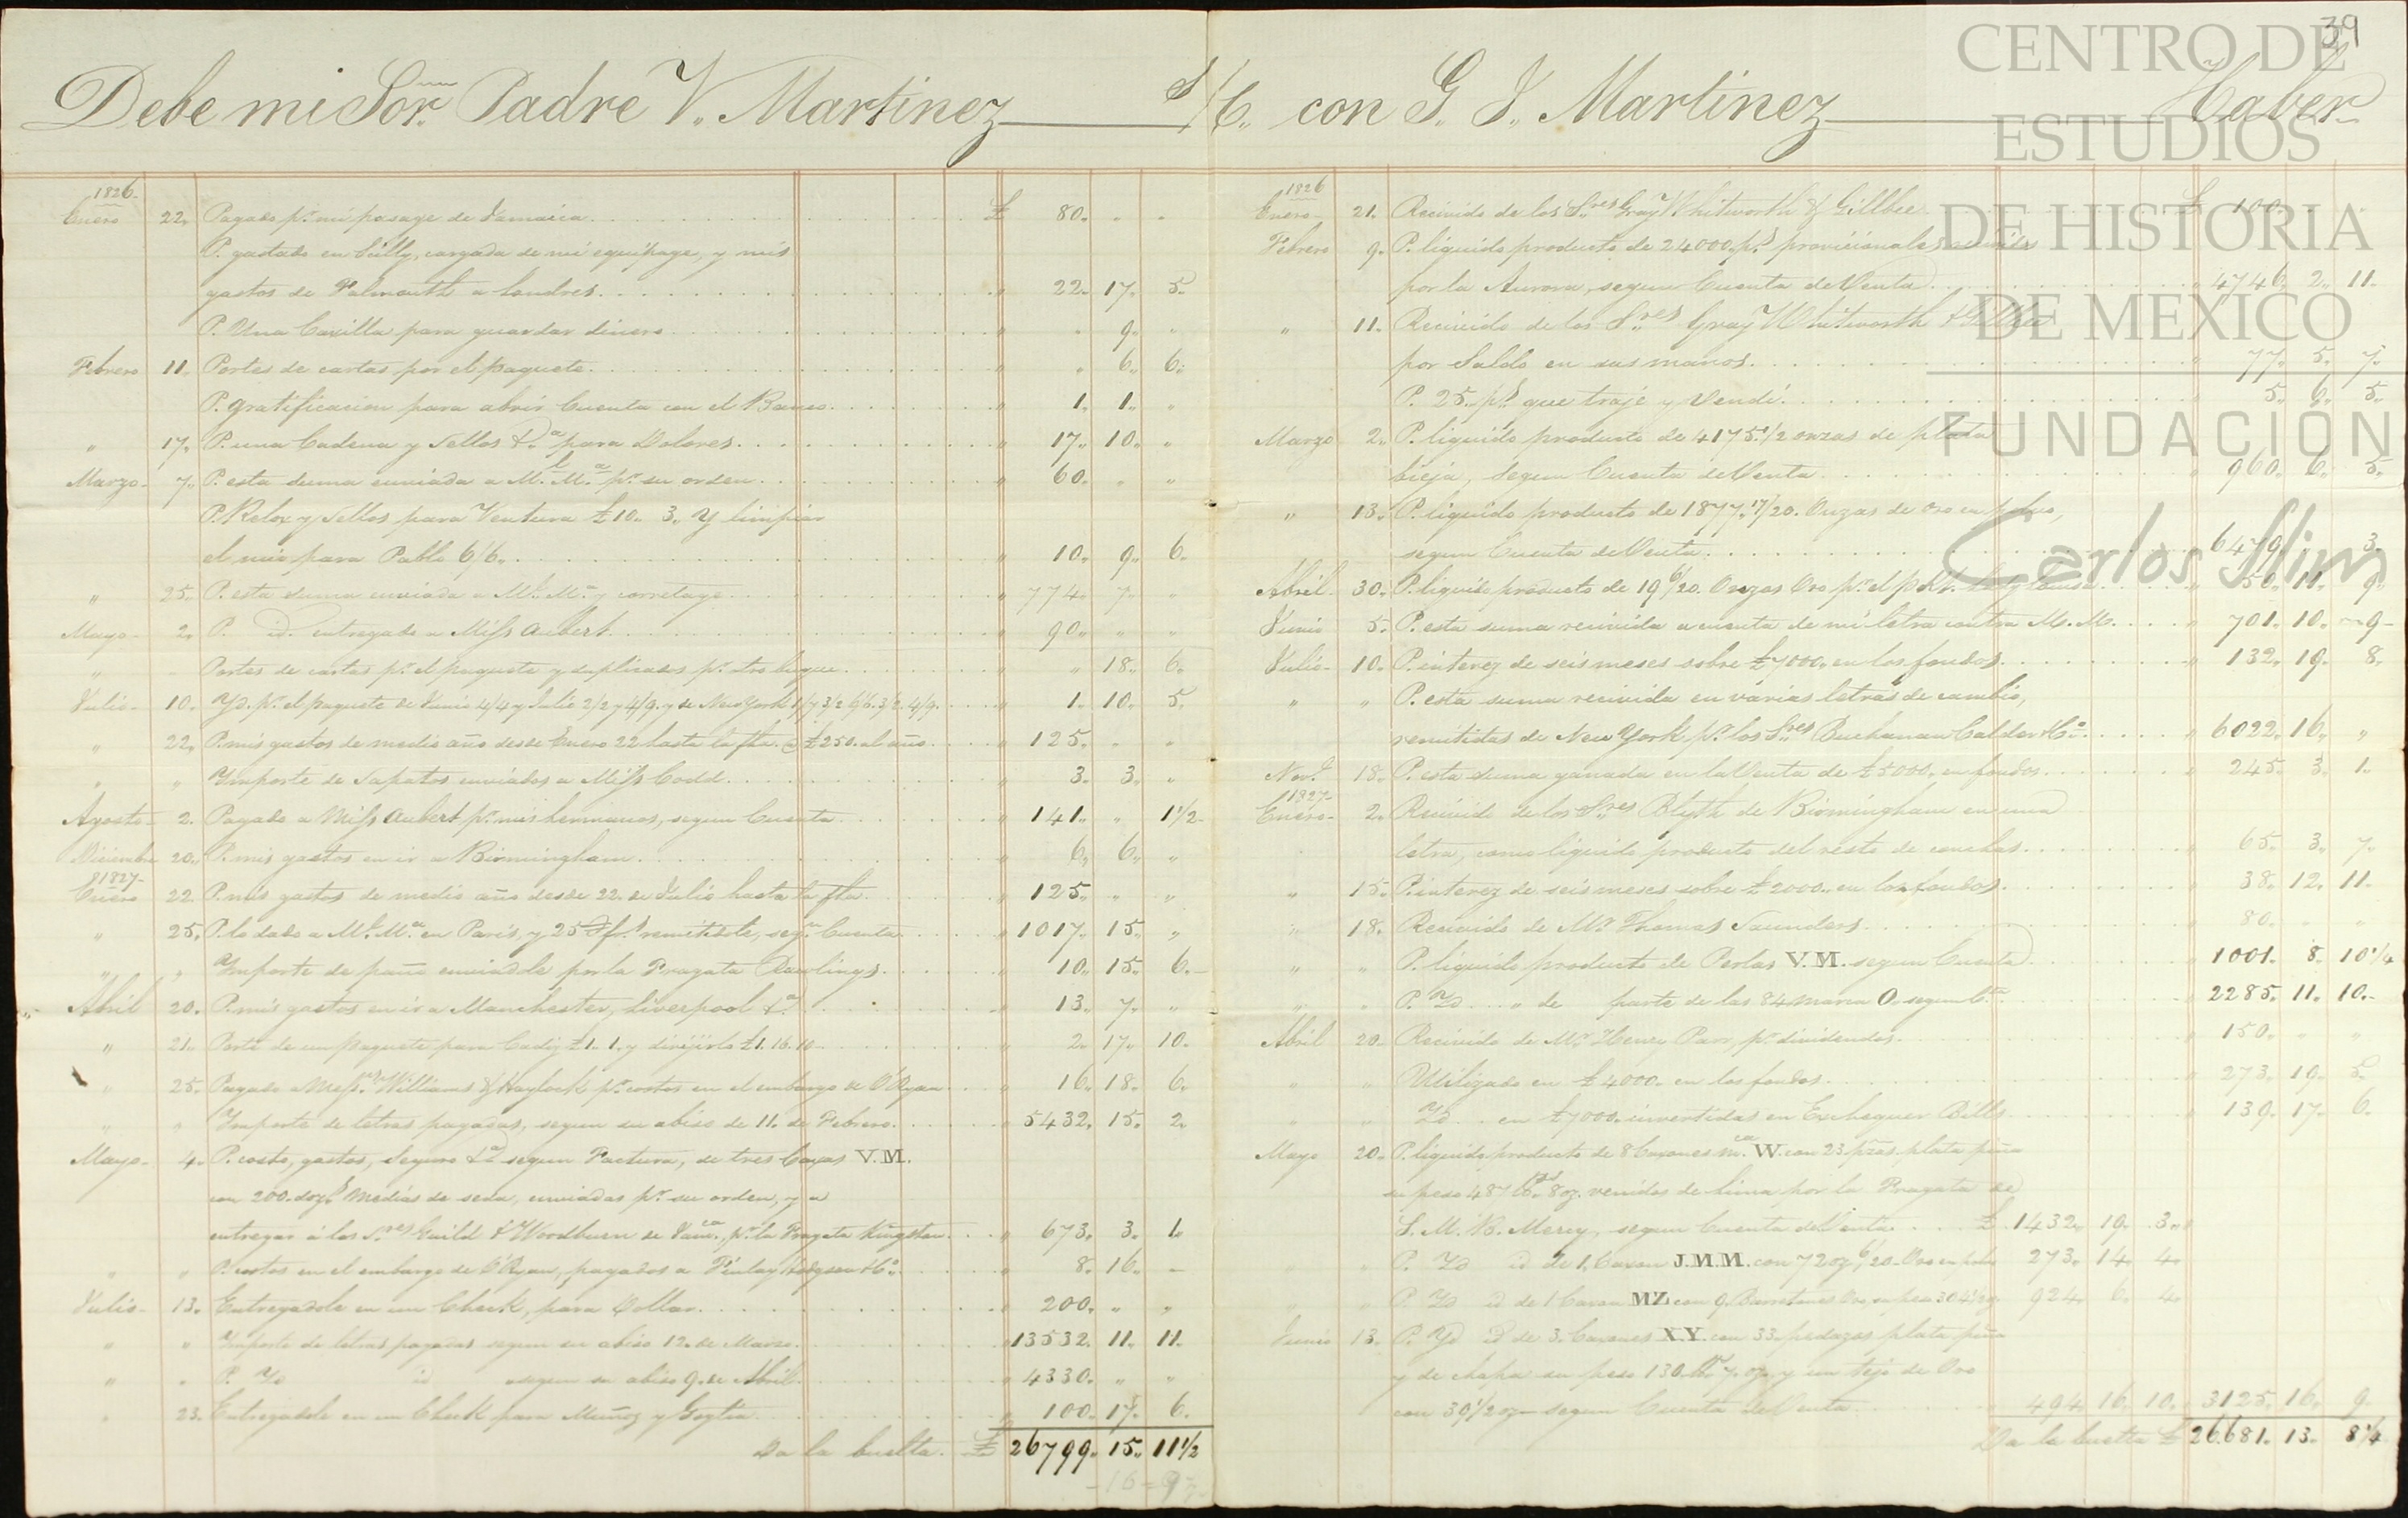 39
Debe mi Sor. Padre V. Martinez S/C. con G. J. Martinez Haber
1826.
Enero 22. Pagado pr. mi pasage de Jamaica £ 80. " "
P. gastado en Scilly, cargada de mi equipage, y mis
gastos de Falmouth a Londres " 22. 17. 5.
P. Una Caxilla para guardar dinero " " 9. "
Febrero 11. Portes de cartas por el paquete " " 6. 6.
P. gratificacion para abrir Cuenta con el Banco " 1. 1. "
" 17. P. una Cadena y Sellos &a. para Dolores " 17. 10. "
Marzo 7. P. esta suma enviada a Ml. Ma. pr. su orden " 60. " "
P. Relox y Sellos para Ventura £10. 3. Y limpiar
el mio para Pablo 6/6. " 10. 9. 6.
" 25. P. esta suma enviada a Ml. Ma. y corretage " 774. 7. "
Mayo 2. P. id. entregado a Miss Aubert " 90. " "
" Portes de cartas pr. el paquete y duplicados pr. otro buque " " 18. 6.
Julio 10. Yd. pr. el paquete de Junio 4/4 y Julio 2/2 y 4/9. y de New York 1/7 3/2 6/6. 3/2. 4/9. " 1. 10. 5.
" 22. P. mis gastos de medio año desde Enero 22 hasta la fha. @ £250. al año " 125. " "
" " Ymporte de Sapatos enviados a Miss Codd " 3. 3. "
Agosto 2. Pagado a Miss Aubert pr. mis hermanos, segun Cuenta " 141. " 1 1/2
Diciembre 20. P. mis gastos en ir a Birmingham " 6. 6. "
1827
Enero 22. P. mis gastos de medio año desde 22. de Julio hasta la fha. " 125. " "
" 25. P. lo dado a Ml. Ma. en Paris, y 25 fs. remitidole, segn. Cuenta " 1017. 15. "
" " Ymporte de paño enviadole por la Fragata Rawlings " 10. 15. 6.
Abril 20. P. mis gastos en ir a Manchester, Liverpool &a. " 13. 7. "
" 21. Porte de un paquete para Cadiz £1. 1. y dirijirlo £1. 16. 10 " 2. 17. 10.
" 25. Pagado a Messrs. Williams & Haylock pr. costos en el embargo de O'Ryan " 16. 18. 6.
" " Ymporte de letras pagadas, segun su abiso de 11. de Febrero " 5432. 15. 2.
Mayo 4. P. costo, gastos, Seguro &a. segun Factura, de tres Caxas V.M.
con 200. doz. Medias de seda, enviadas pr. su orden, y a
entregar a los Sres Guild & Woodburn de Jamca., pr. la Fragata Kingston " 673. 3. 1.
" " P. costos en el embargo de O'Ryan, pagados a Finlay Hodgson & Co. " 8. 16. -
Julio 13. Entregadole en un Check, para Dollar " 200. " "
" " Ymporte de letras pagadas segun su abiso 12. de Marzo " 13532. 11. 11.
" " P. Yd id segun su abiso 9. de Abril " 4330. " "
" 23. Entregadole en un Check para Muñoz y " 100. 17. 6.
Da la buelta. £ 26799. 15. 11 1/2
16 = 9
1826
Enero 21. Recivido de los Sres Gray Whitworth & Gillbee £ 100.
Febrero 9. P. liquido producto de 24000 ps. provicionales
por la Aurora, segun Cuenta de Venta " 4746. 2. 11.
" 11. Recivido de los Sres Gray Whitworth & Gillbee
por Saldo en sus manos " 77. 5. 7.
P. 25. ps. que traje y Vendi " 5. 6. 5.
Marzo 2. P. liquido producto de 4175. 1/2 onzas de plata
bieja, Segun Cuenta de Venta " 960. 6. 5.
" 13. P. liquido producto de 1877. 17/20. Onzas de oro en polvo,
segun Cuenta de Venta " 6479. 3.
Abril 30. P. liquido producto de 19 6/20. Onzas Oro pr. el 50. 11. 9.
Junio 5. P. esta suma recivida a cuenta de mi letra contra M. M. " 701. 10. 9
Julio 10. P. interez de seis meses sobre £7000. en los fondos " 132. 19. 8.
" " P. esta suma recivida en varias letras de cambio,
remitidas de New York pr. los Sres Buchanan Calder & Co. " 6022. 16. "
Nove. 18. P. esta suma ganada en la Venta de £5000. en fondos " 245. 3. 1.
1827
Enero 2. Recivido de los Sres Blyth de Birmingham en una
letra, como liquido producto del resto de conchas " 65. 3. 7.
" 15. P. interez de seis meses sobre £2000. en los fondos " 38. 12. 11.
" 18. Recivido de Mr. Thomas Saunders " 80. " "
" " P. liquido producto de Perlas V.M. segun Cuenta " 1001. 8. 10 1/4
" " P. Yd " de parte de las 84 marca O. segun Cta. " 2285. 11. 10.
Abril 20. Recivido de Mr. Henry Parr, pr. dividendos " 150. " "
" " Utilizado en £4000. en los fondos " 273. 19. 5.
" " Yd en £7000. invertidas en Exchequer Bills " 139. 17. 6.
Mayo 20. P. liquido producto de 8 Caxones mca. W. con 23 pzas. plata piña
su peso 487 lbs. 8 oz. venidos de Lima por la Fragata de
S. M. B. Mercy, segun Cuenta de Venta £ 1432. 19. 3.
" " P. Yd id de 1. Caxon J.M.M. con 72 oz 6/20. Oro en polvo 273. 14. 4.
" " P. Yd id de 1 Caxon MZ con 9. Barretones Oro su peso 304 924. 6. 4.
Junio 13. P. Yd id de 3. Caxones X.Y. con 33. pedazos plata piña
y de chapa su peso 130. lbs. 7. oz. y un tejo de Oro
con 39 1/2 oz segun Cuenta de Venta 494. 16. 10. 3125. 16. 9.
Da la buelta £ 26.681. 13. 8 1/4
CENTRO DE
ESTUDIOS
DE HISTORIA
DE MEXICO
FUNDACIÓN
Carlos Slim